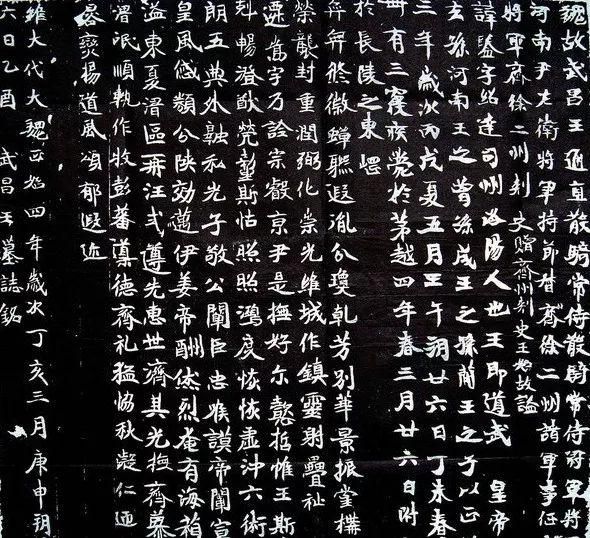 魏故武昌王通直散騎常侍散騎常侍冠軍將
河南尹左衛將軍持節督齊徐二州諸軍事征
將軍齊徐二州刾史贈齊州刾史王如故謚
諱鑒字紹達司州洛陽人也王即道武皇帝
玄孫河南王之曾孫成王之孫蘭王之子以正
三年歲次丙戌夏五月壬午朔廿六日丁未春
卌有三寢疾薨於第越四年春三月廿六日附
於長陵之東
弈弈綿徽蟬聯遐胤分瓊乹芳別華景振堂構
榮襲封重潤弼化崇光維城作鎮靈疊祉
當守乃診宗穀京尹是撫好尔懿招惟王斯
剋暢澄猷斯怙照照鴻度恢恢虛沖六術
朗五典外融私光子敬公闡臣忠謨帝闡宣
皇風類公陝効邁伊姜帝酬休烈奄有海葙
溢東夏滑區汪式遵先惠世濟其光撫齊
滑氓順軌作牧彭蕃導德齊礼猛恊秋凝仁逥
褒揚道風頌郁遐迹
維大代大魏正始四年歲次丁亥三月庚申玥
六日乙酉武昌王墓誌銘